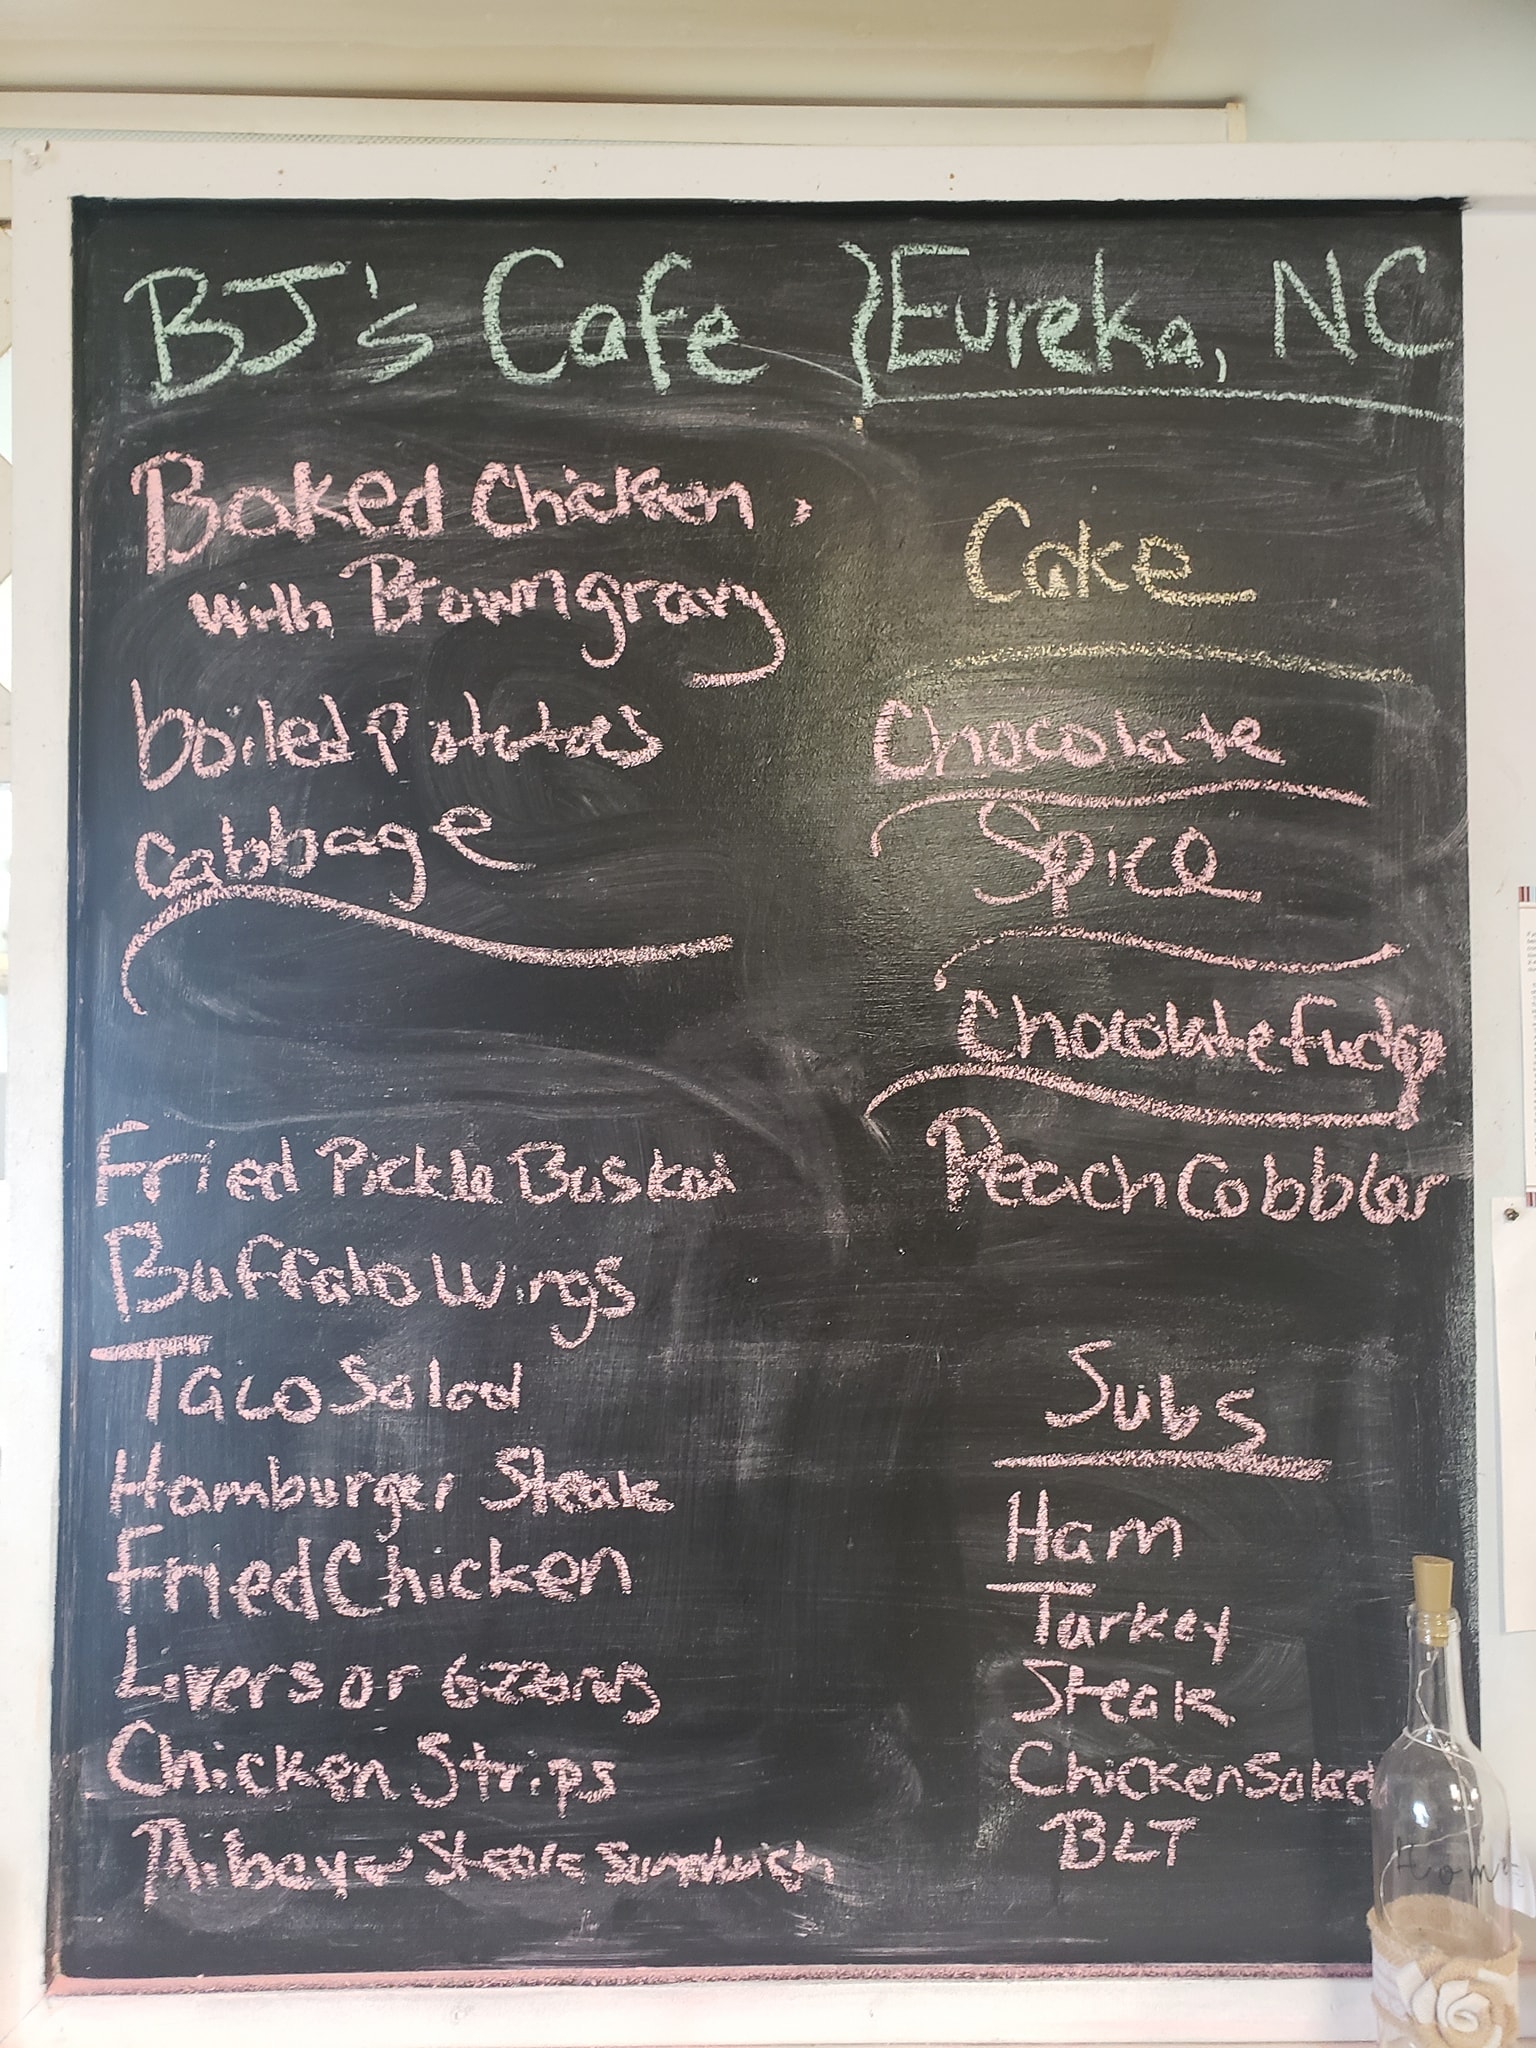 BJ's Cafe } Eureka, NC
Baked Chicken,
with Brown gravy
boiled Potatoes
Cabbage
Fried Pickle Basket
Buffalo Wings
Taco Salad
Hamburger Steak
Fried Chicken
Livers or
Chicken Strips
Ribeye Steak Sandwich
Cake
Chocolate
Spice
Chocolate Fudge
Peach Cobbler
Subs
Ham
Turkey
Steak
Chicken Salad
BLT